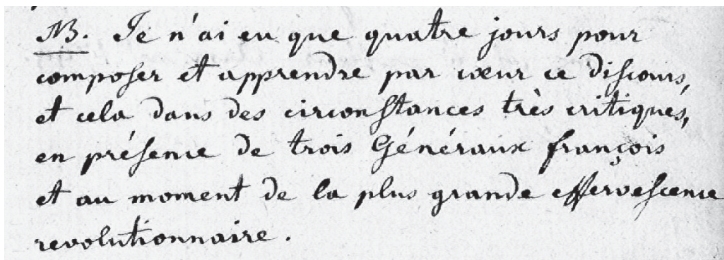 NB. Je n'ai eu que quatre jours pour
composer et apprendre par cœur ce discours,
et cela dans des circonstances très critiques,
en présence de trois Généraux françois
et au moment de la plus grande effervescence
revolutionnaire.